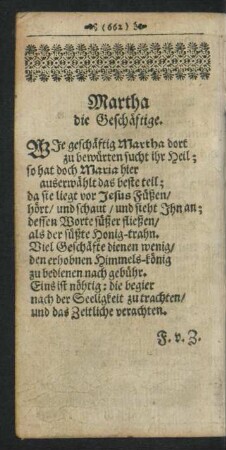 (662)
Martha
die Geschäftige.
WJe geschäftig Martha dort
zu bewürken sucht ihr Heil;
so hat doch Maria hier
auserwählt das beste teil;
da sie liegt vor Jesus Füßen/
hört/ und schaut/ und sieht Jhn an;
dessen Worte süßer fließen/
als der süßte Honig-trahn.
Viel Geschäfte dienen wenig/
den erhobnen Himmels-könig
zu bedienen nach gebühr.
Eins ist nöhtig: die begier
nach der Seeligkeit zu trachten/
und das Zeitliche verachten.
F. v. Z.